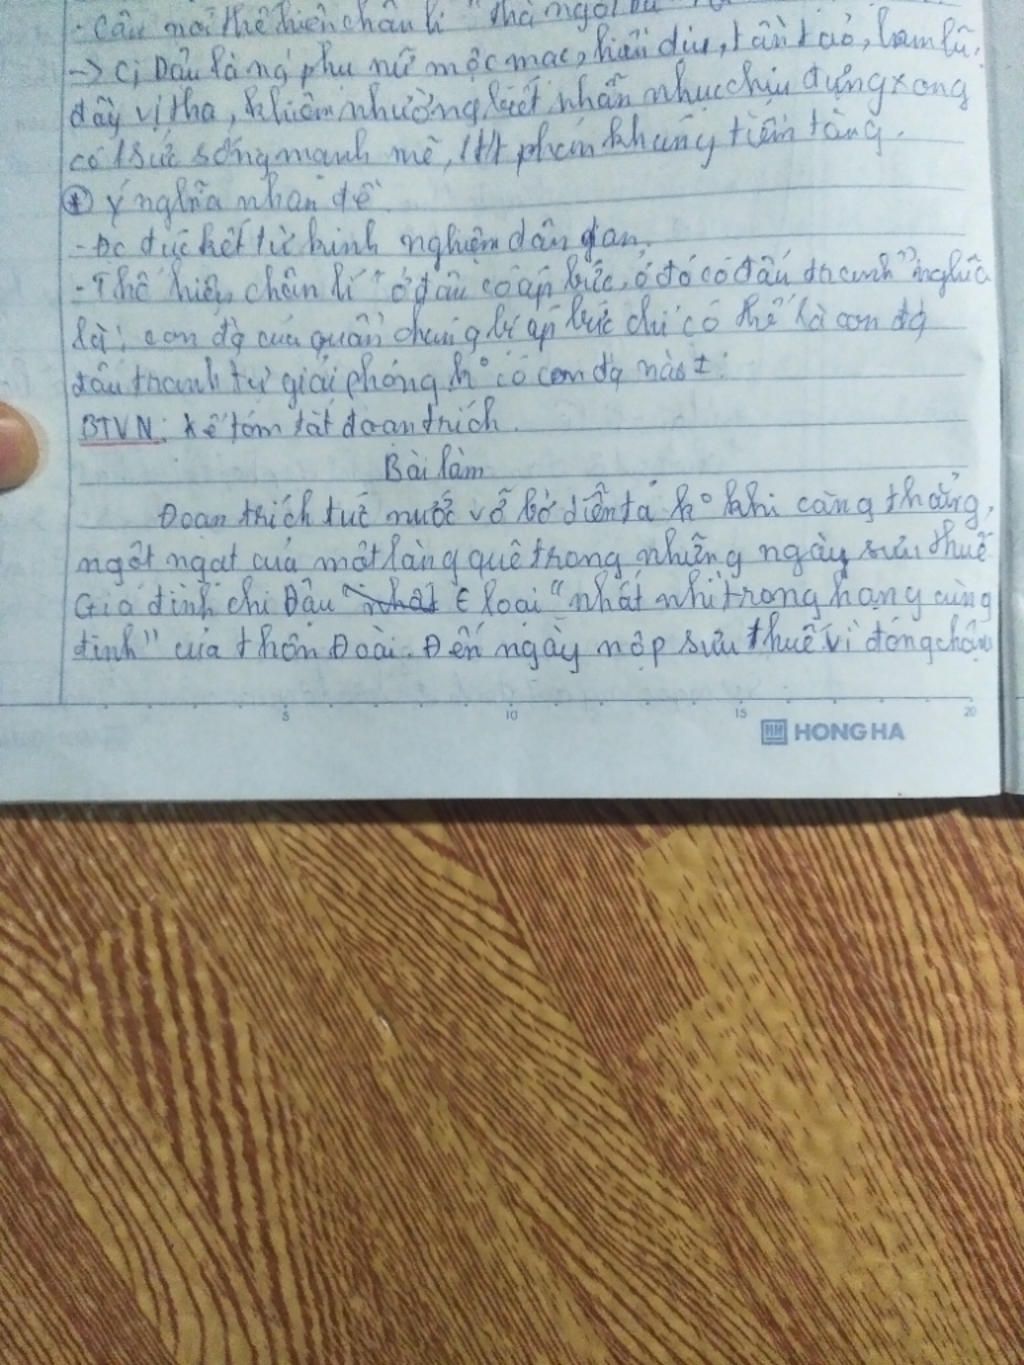 - Câu nói thể hiện chân lí "thà ngồi tù
-> Cị Dậu là ng' phụ nữ mộc mạc, hiền dịu, tần tảo, lam lũ,
đầy vị tha, khiêm nhường, biết nhẫn nhục chịu đựng xong
có 1 sức sống mạnh mẽ, 1 tt phản kháng tiềm tàng.
* Ý nghĩa nhan đề
- Đc đúc kết từ kinh nghiệm dân gian.
- Thể hiện chân lí "ở đâu có áp bức, ở đó có đấu tranh" nghĩa
là: con đg của quần chúng bị áp bức chỉ có thể là con đg
đấu tranh tự giải phóng k° có con đg nào ≠.
BTVN: Kể tóm tắt đoạn trích.
Bài làm
Đoạn trích tức nước vỡ bờ diễn tả k° khí căng thẳng,
ngột ngạt của một làng quê trong những ngày sưu thuế
Gia đình chị Dậu ∈ loại "nhất nhì trong hạng cùng
đinh" của thôn Đoài. Đến ngày nộp sưu thuế vì đóng chậm
5 10 15 20
HONG HA